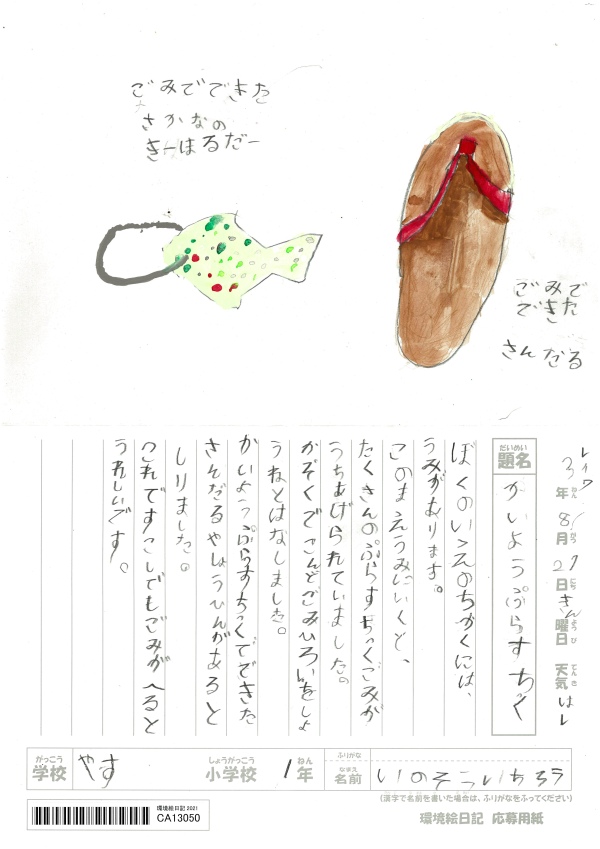 ごみでできた
さかなの
きーほるだー
ごみで
できた
さんだる
れいわ3年ねん8月がつ27日にちきん曜日ようび 天気てんき はれ
だいめい
題名
かいようぷらすちっく
ぼくのいえのちかくには、
うみがあります。
このまえうみにいくと、
たくさんのぷらすちっくごみが
うちあげられていました。
かぞくでこんどごみひろいをしょ
うねとはなしました。
かいようぷらすちっくでできた
さんだるやしょうひんがあると
しりました。
これですこしでもごみがへると
うれしいです。
がっこう
学校
やす
しょうがっこう
小学校
1年ねん
ふりがな
なまえ
名前
いのそういちろう
(漢字で名前を書いた場合は、ふりがなをふってください)
環境絵日記 2021
CA13050
環境絵日記 応募用紙